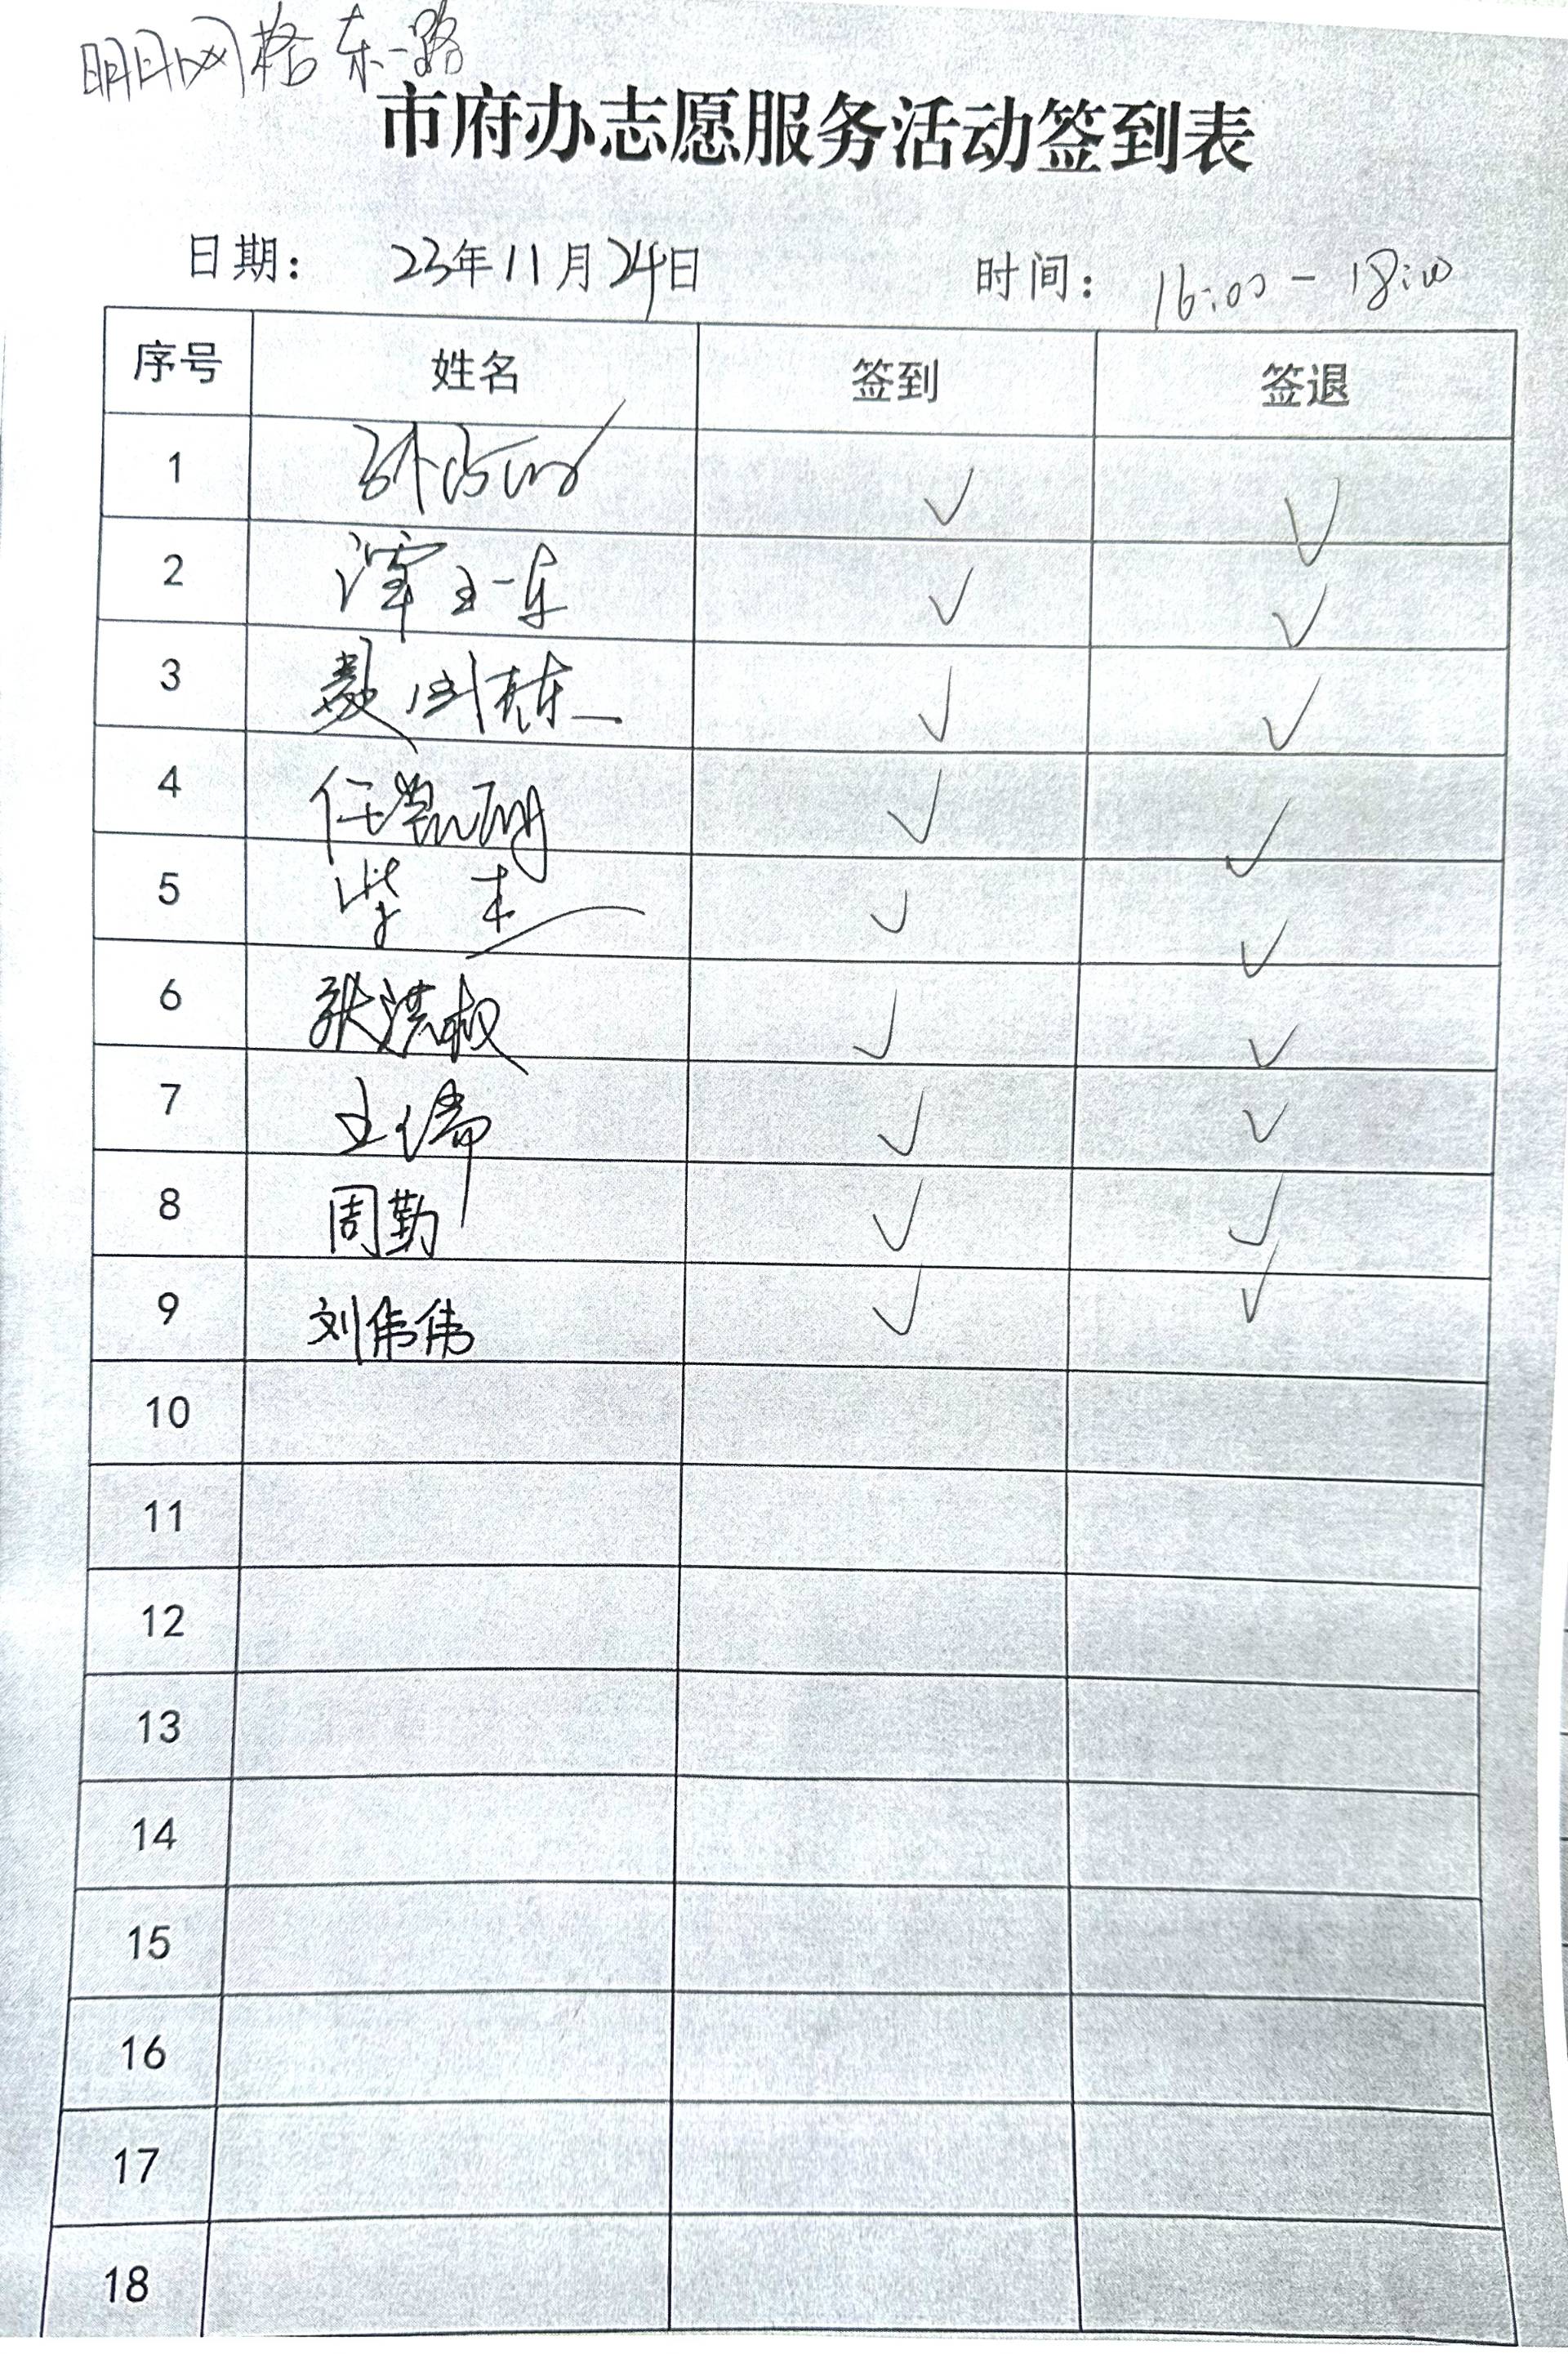 明日网格东一路
市府办志愿服务活动签到表
日期： 23年11月24日 时间： 16:00-18:00
序号 姓名 签到 签退
1 ✓ ✓
2 ✓ ✓
3 ✓ ✓
4 任凯 ✓ ✓
5 柴 ✓ ✓
6 张洪 ✓ ✓
7 王 ✓ ✓
8 周勤 ✓ ✓
9 刘伟伟 ✓ ✓
10
11
12
13
14
15
16
17
18